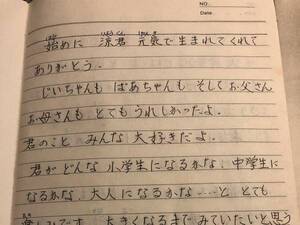 NO.
Date
始めに 涼君 元気で生まれてくれて
ありがとう。
じいちゃんも ばあちゃんも そしてお父さん
お母さんも とてもうれしかったよ。
君のこと みんな 大好きだよ。
君が どんな 小学生になるかな、中学生に
なるかな、大人に なるかな……と とても
楽しみです。大きくなるまで みていたいと思う